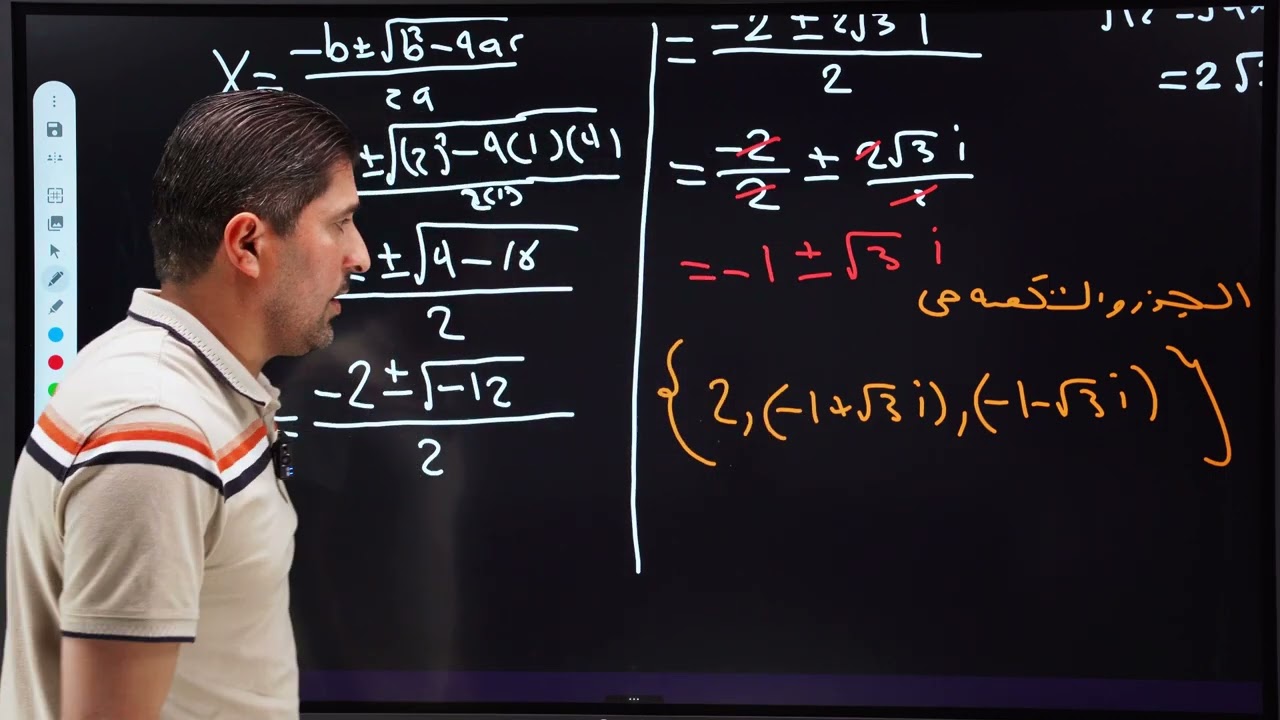 X = (-b ± √(b² - 4ac)) / 2a
± √((2)² - 4(1)(4)) / 2(1)
= ± √(4 - 16) / 2
= (-2 ± √-12) / 2
= (-2 ± 2√3 i) / 2
= -2/2 ± 2√3 i/2
= -1 ± √3 i
الجذور التكعيبية هي
{ 2, (-1+√3 i), (-1-√3 i) }
= 2√3